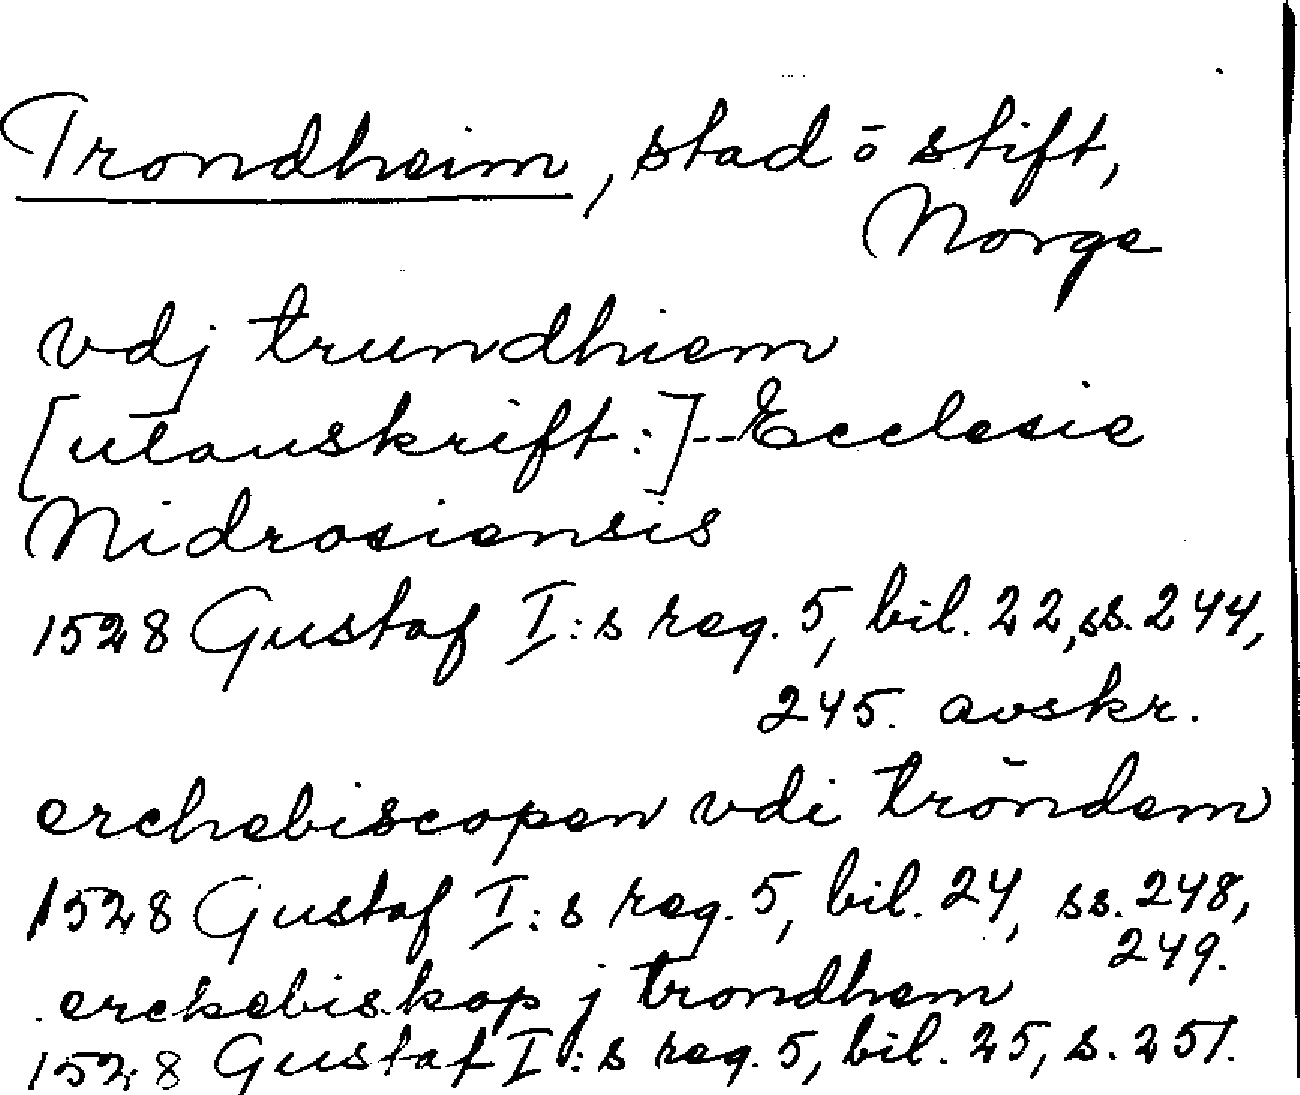 Trondheim, stad o stift,
Norge
vdj trundhiem
[utanskrift:]--Ecclesie
Nidrosiensis
1528 Gustaf I:s reg. 5, bil. 22, ss. 244,
245. avskr.
erchebiscopen vdi trōndem
1528 Gustaf I:s reg. 5, bil. 24, ss. 248,
249.
erckebiskop j trondhem
1528 Gustaf I:s reg. 5, bil. 25, s. 251.